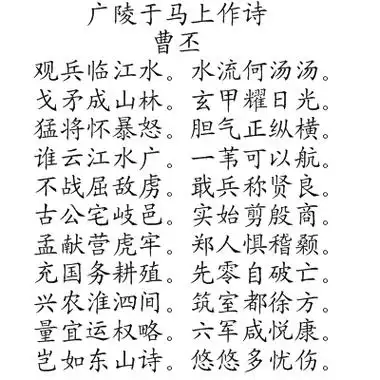 广陵于马上作诗
曹丕
观兵临江水。水流何汤汤。
戈矛成山林。玄甲耀日光。
猛将怀暴怒。胆气正纵横。
谁云江水广。一苇可以航。
不战屈敌虏。戢兵称贤良。
古公宅岐邑。实始剪殷商。
孟献营虎牢。郑人惧稽颡。
充国务耕殖。先零自破亡。
兴农淮泗间。筑室都徐方。
量宜运权略。六军咸悦康。
岂如东山诗。悠悠多忧伤。